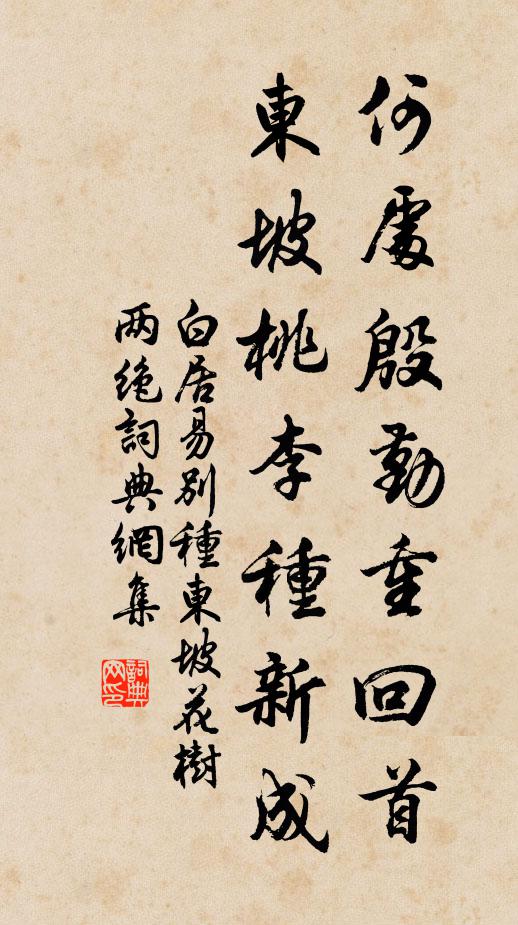 何處殷勤重回首
東坡桃李種新成
白居易別種東坡花樹
两絶詞典網集
詞典网印